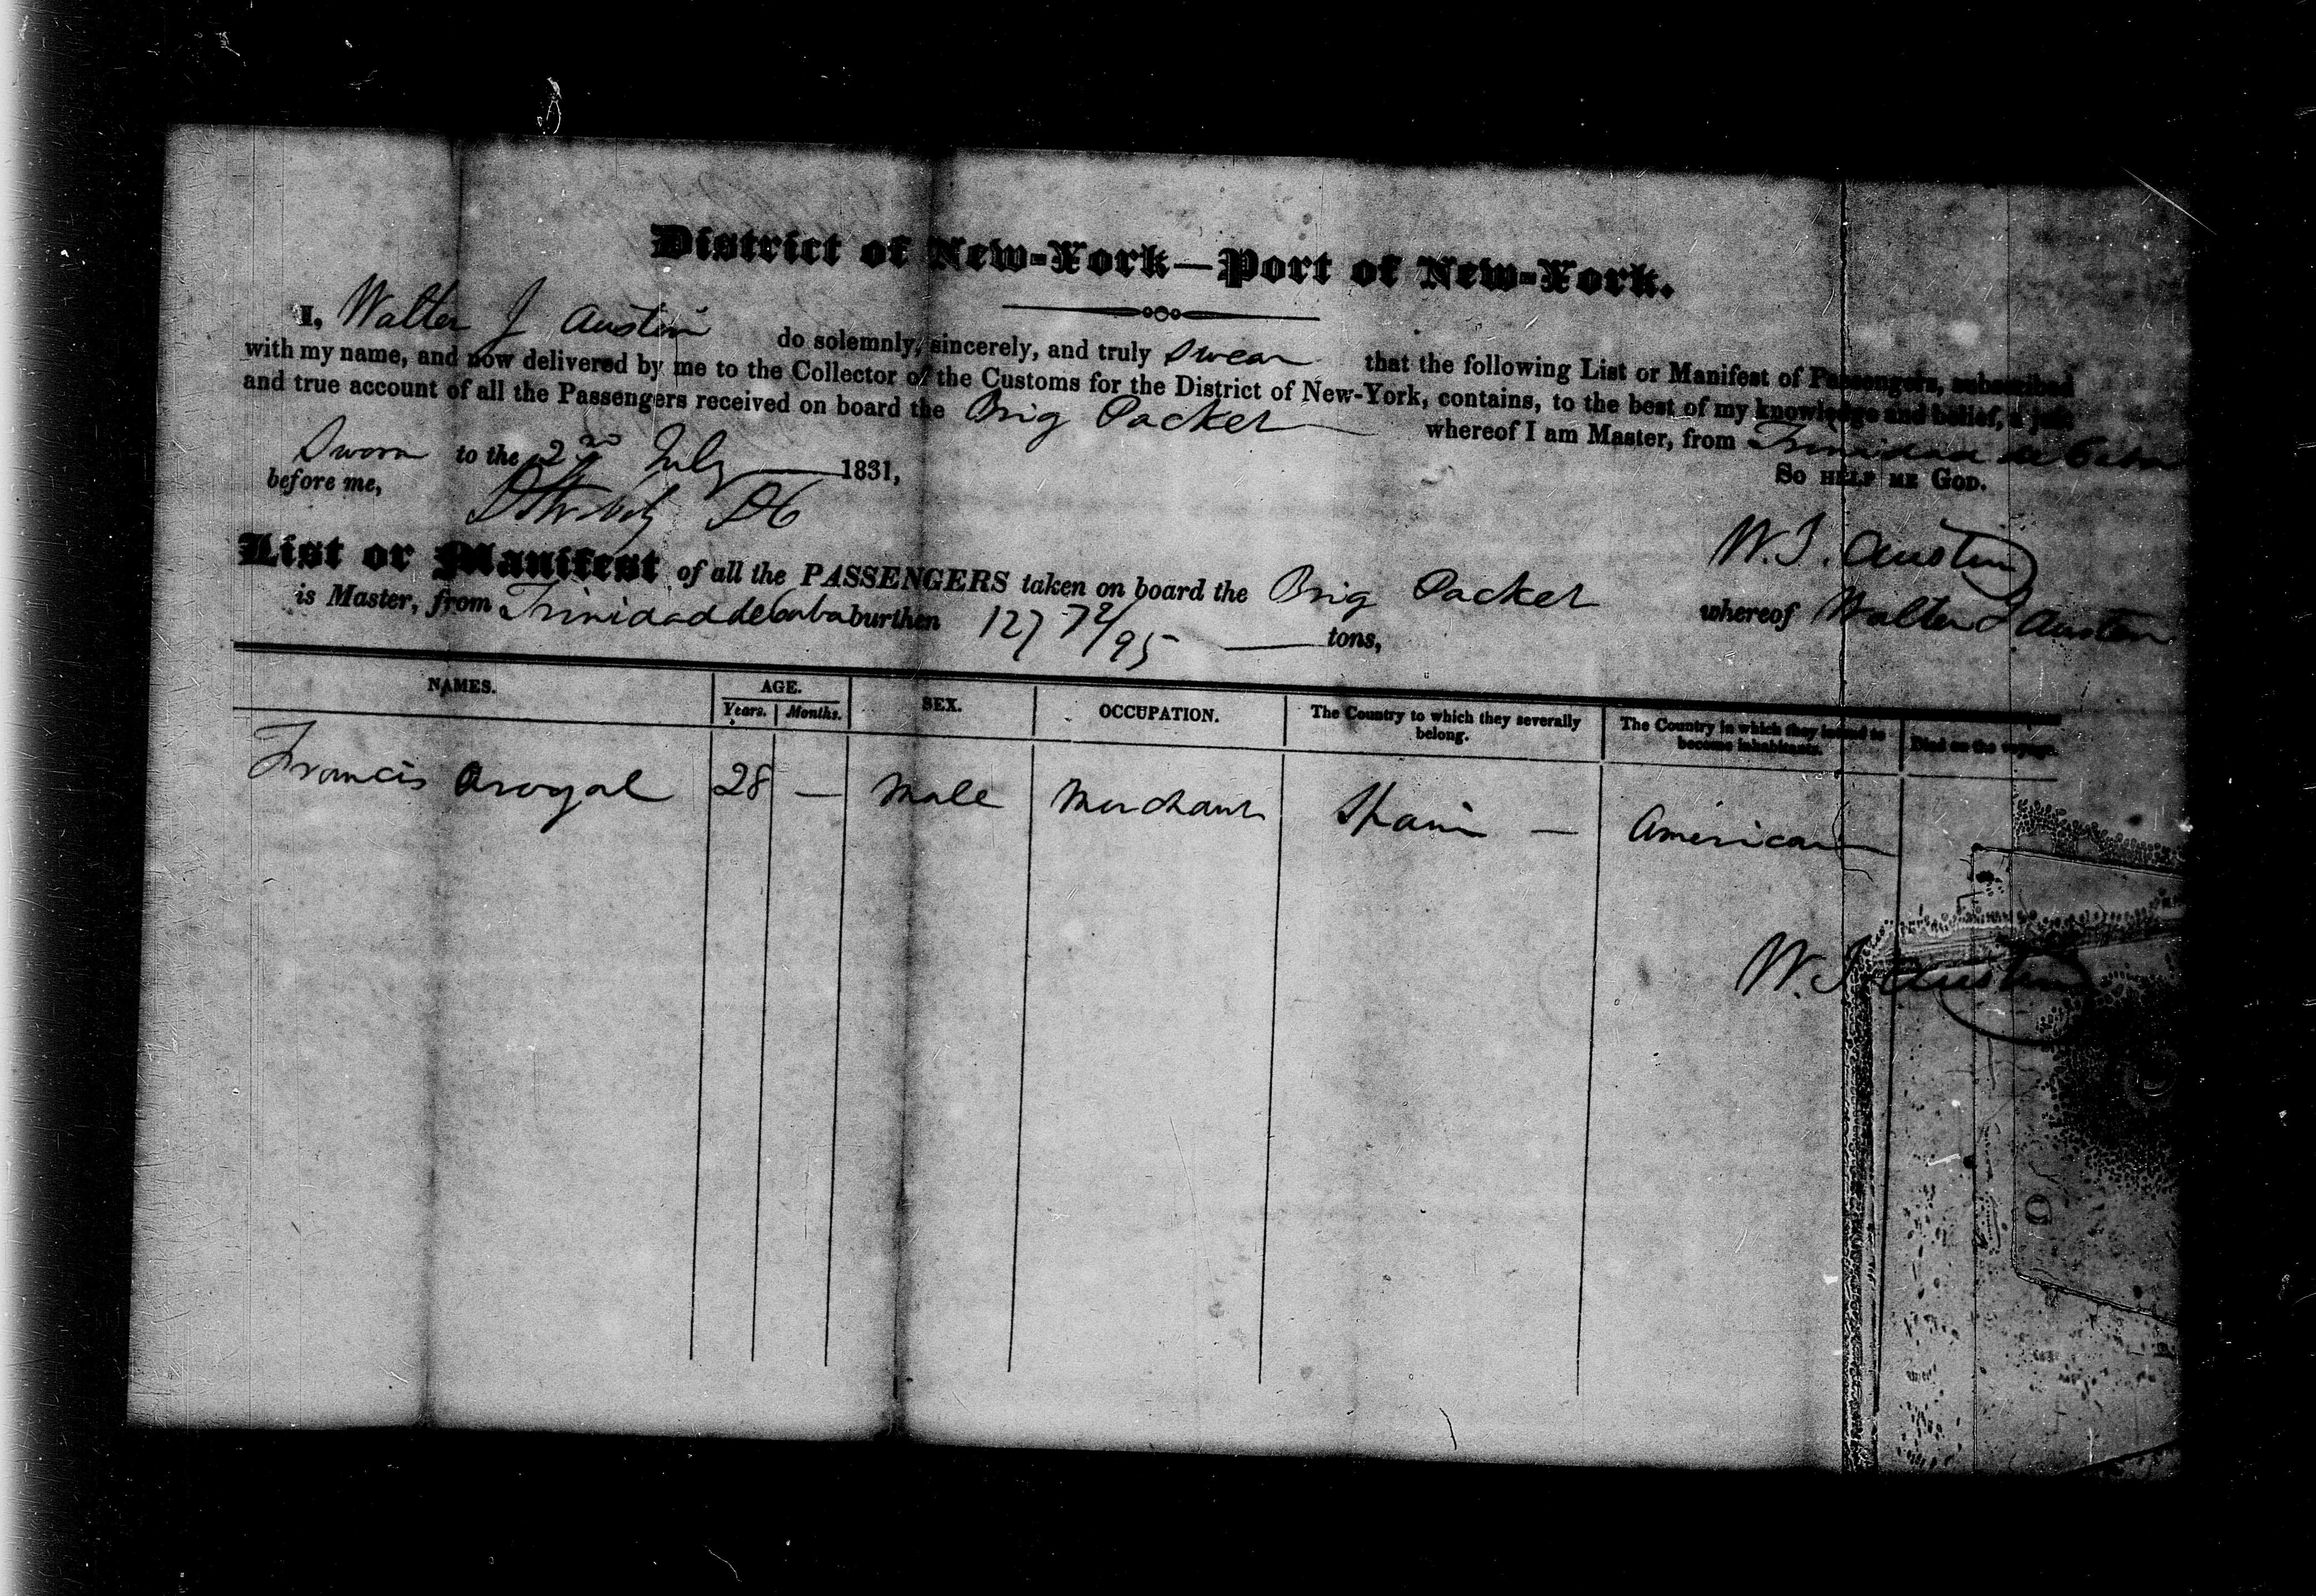 District of New-York—Port of New-York.
I, Walter J Austin do solemnly, sincerely, and truly swear that the following List or Manifest of Passengers, subscribed
with my name, and now delivered by me to the Collector of the Customs for the District of New-York, contains, to the best of my knowledge and belief, a just
and true account of all the Passengers received on board the Brig Packet whereof I am Master, from Trinidad de Cuba
Sworn to the 2nd July 1831,
So HELP ME GOD.
before me,
W. J. Austin
List or Manifest of all the PASSENGERS taken on board the Brig Packet whereof Walter J Austin
is Master, from Trinidad de Cuba burthen 127 72/95 tons,
NAMES. AGE. SEX. OCCUPATION. The Country to which they severally belong. The Country in which they intend to become inhabitants. Died on the voyage.
Years. Months.
Francis Arogal 28 — Male Merchant Spain — American
W. J. Austin